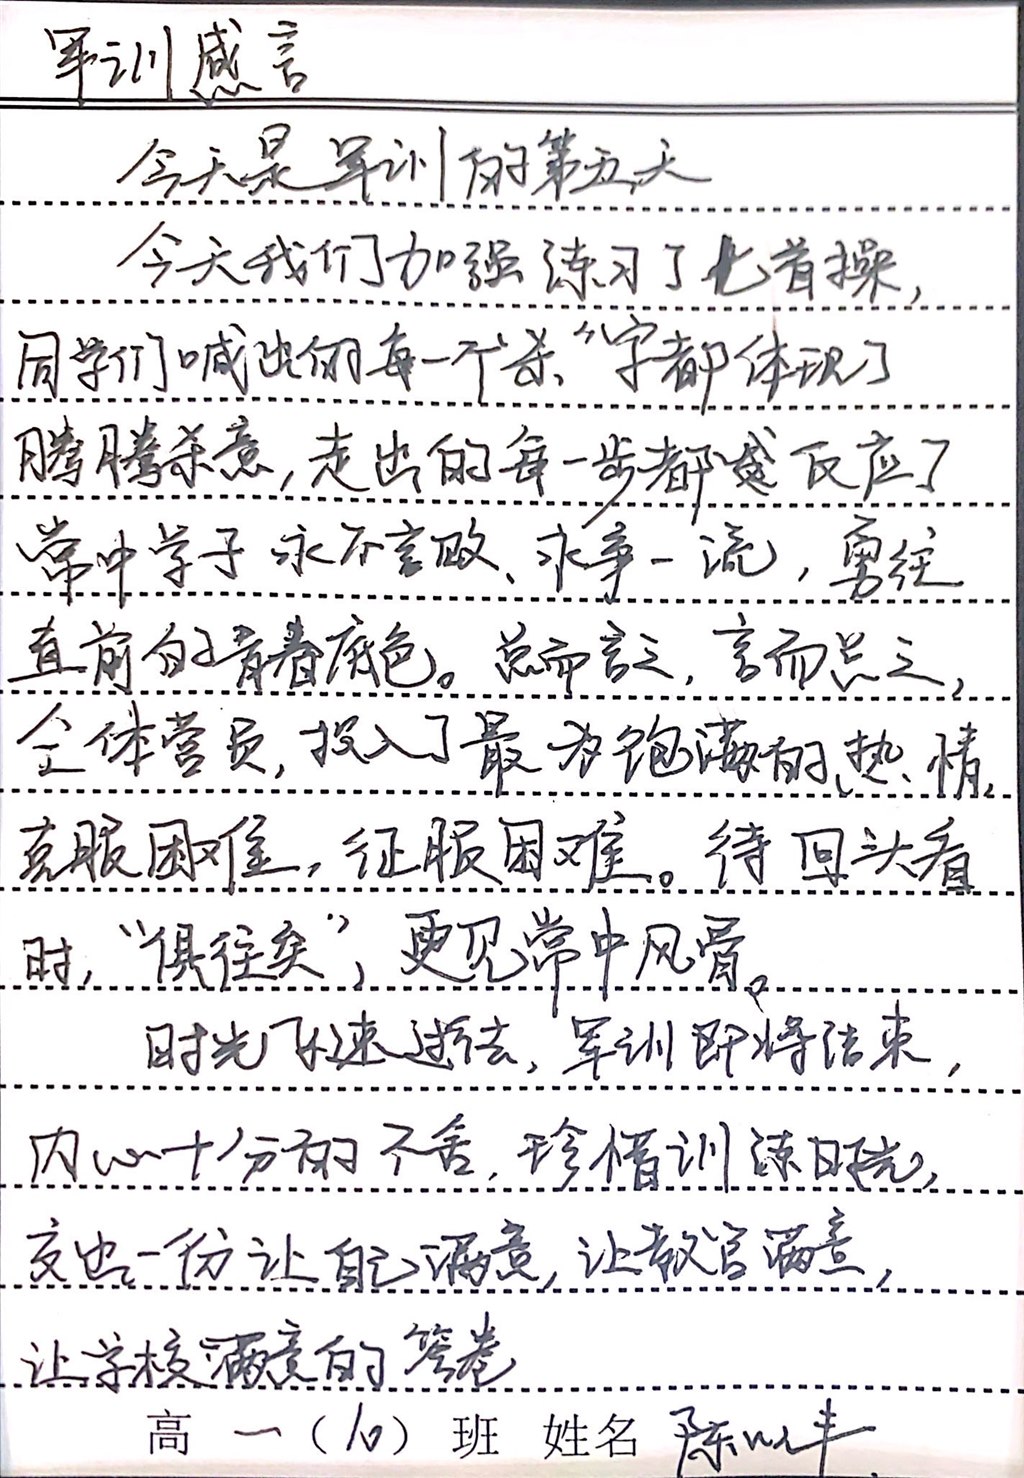 军训感言
今天是军训的第五天
今天我们加强练习了匕首操，
同学们喊出的每一个“杀”字都体现了
腾腾杀意，走出的每一步都感反应了
常中学子永不言败、永争一流，勇往
直前的青春底色。总而言之，言而总之，
全体营员，投入了最为饱满的热情，
克服困难，征服困难。待回头看
时，“俱往矣”，更见常中风骨。
时光飞速逝去，军训即将结束，
内心十分的不舍，珍惜训练时光，
交出一份让自己满意，让教官满意，
让学校满意的答卷
高一（10）班 姓名 陈以丰